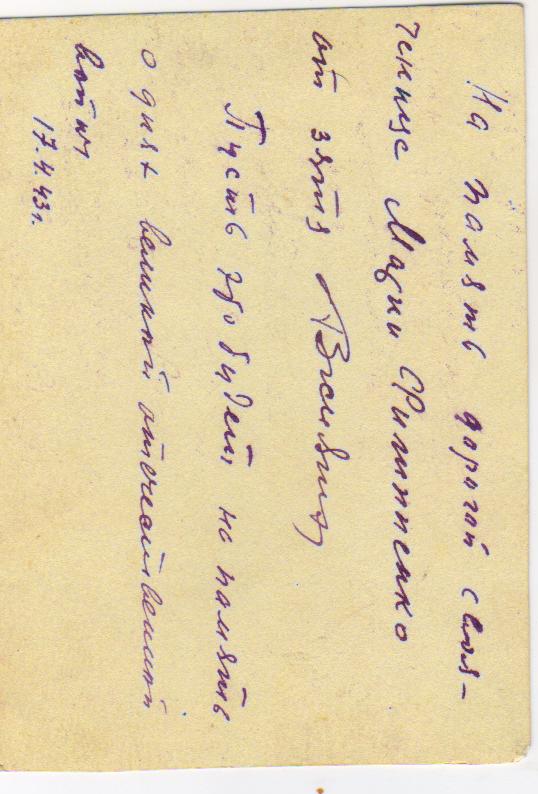 На память дорогой своя-
ченице Марии Филипенко
от зятя
Пусть это будет на память
о днях великой отечественной
войны
17.4.43г.